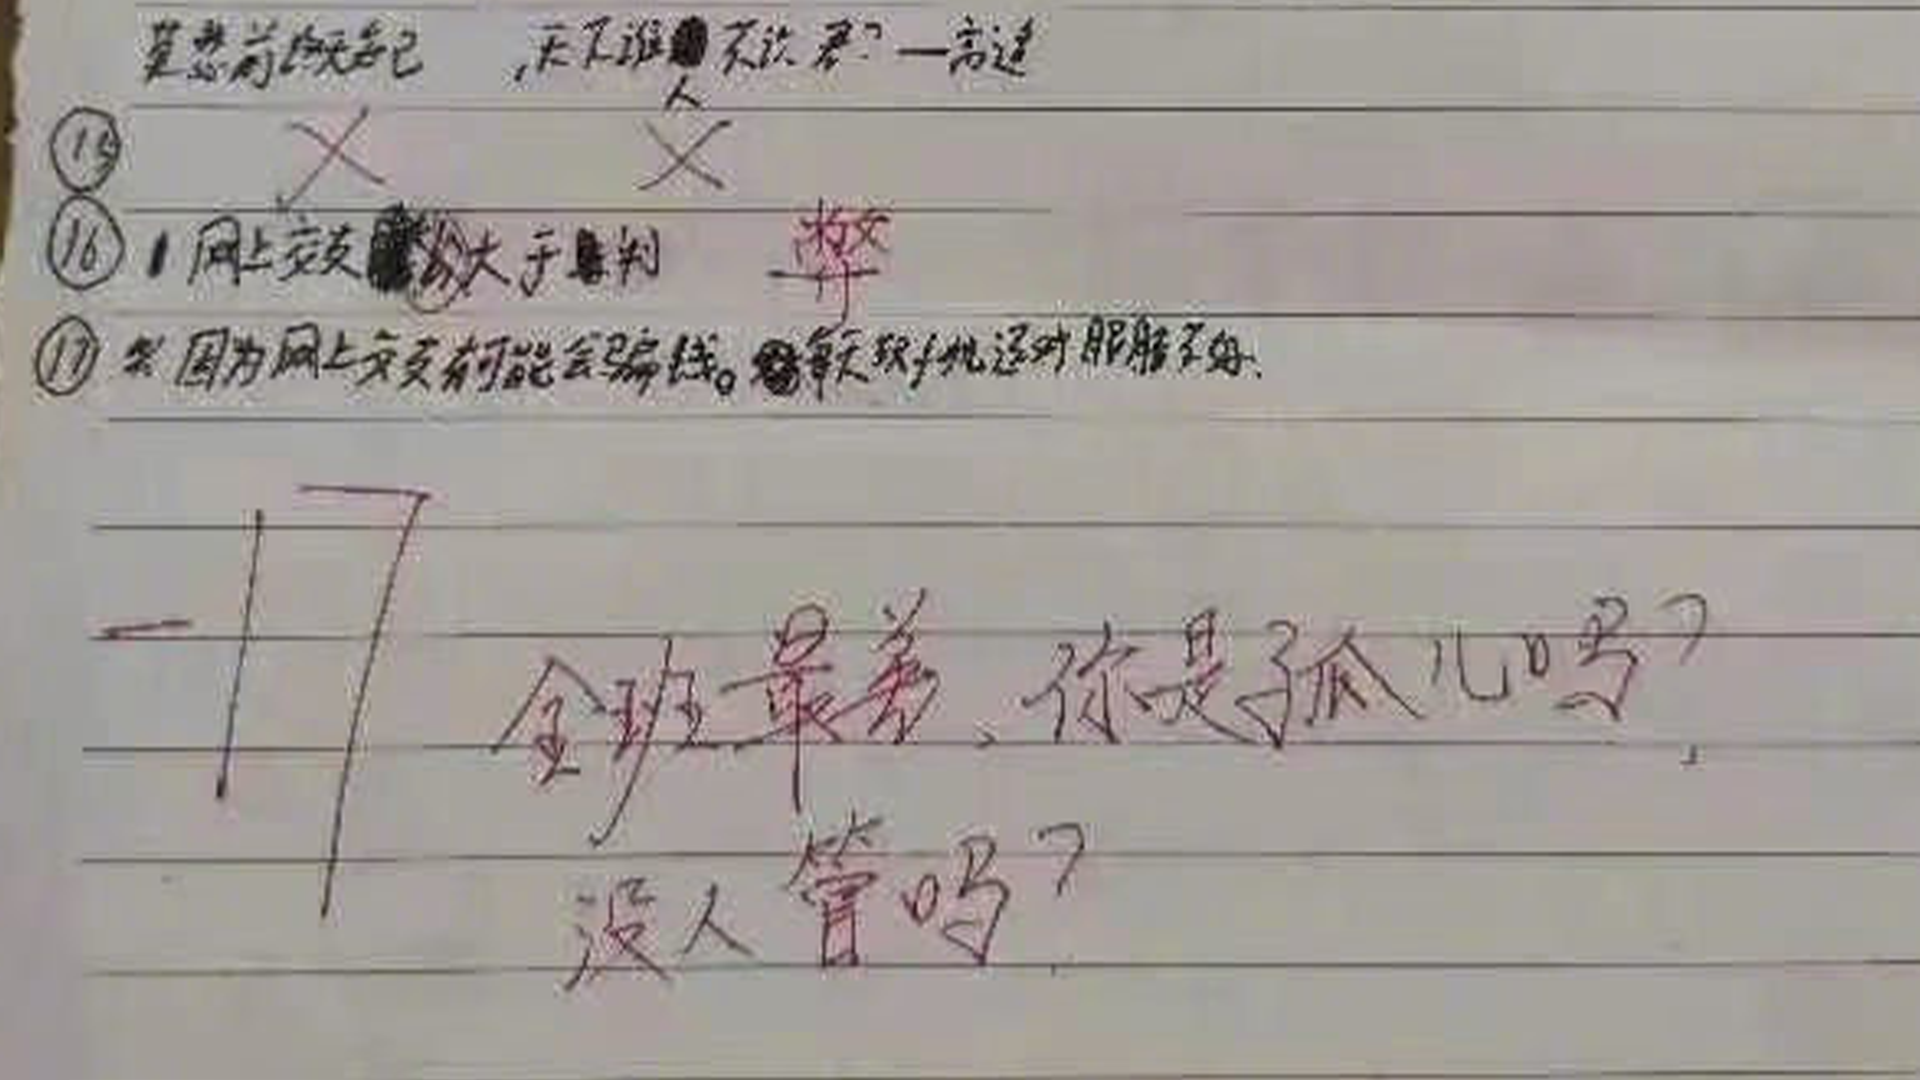 莫愁前路无知己 ,天下谁人不识君?—高适
⑮
⑯ 网上交友 大于判
弊
⑰ 因为网上交友有可能会骗钱。每天玩手机还对眼睛不好.
-17
全班最差、你是孤儿吗?
没人管吗?